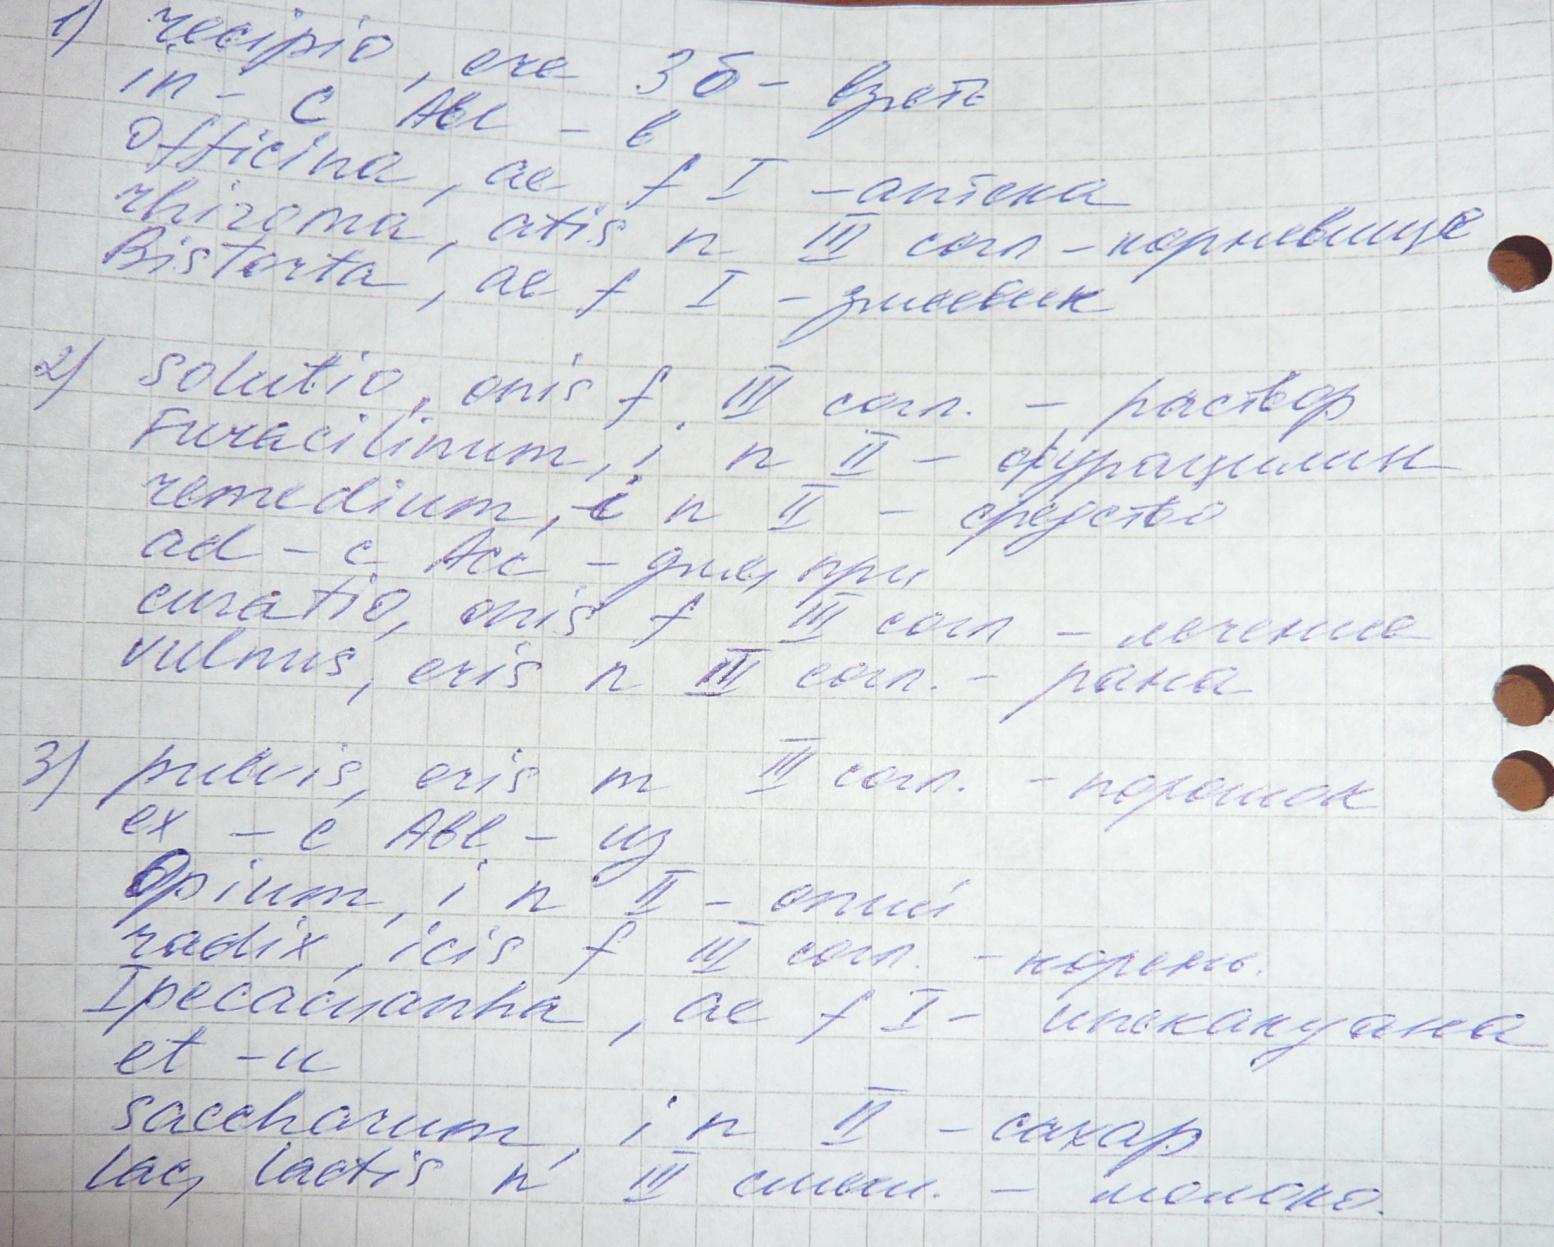 1) recipio, ere 3б - взять
in - c Abl - в
Officina, ae f I - аптека
rhizoma, atis n III согл - корневище
Bistorta, ae f I - змеевик
2) solutio, onis f III согл. - раствор
Furacilinum, i n II - фурацилин
remedium, i n II - средство
ad - c Acc - для, при
curatio, onis f III согл - лечение
vulnus, eris n III согл. - рана
3) pulvis, eris m III согл. - порошок
ex - c Abl - из
Opium, i n II - опий
radix, icis f III согл. - корень.
Ipecacuanha, ae f I - ипекакуана
et - и
saccharum, i n II - сахар
lac, lactis n III смеш. - молоко.